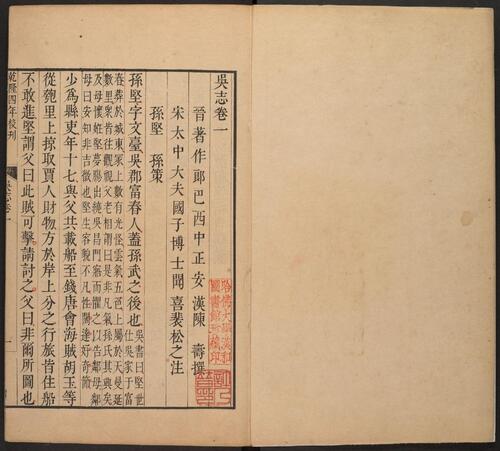 吳志卷一
晉著作郎巴西中正安漢陳壽撰
宋太中大夫國子博士聞喜裴松之注
孫堅　孫策
孫堅字文臺吳郡富春人蓋孫武之後也吳書曰堅世仕吳家于富
春葬於城東冢上數有光怪雲氣五色上屬於天曼延
數里衆皆往觀視父老相謂曰是非凡氣孫氏其興矣
及母懷姙堅夢腸出繞吳昌門寤而懼之以告鄰母鄰
母曰安知非吉徵也堅生容貌不凡性闊達好奇節
少爲縣吏年十七與父共載船至錢唐會海賊胡玉等
從匏里上掠取賈人財物方於岸上分之行旅皆住船
不敢進堅謂父曰此賊可擊請討之父曰非爾所圖也
乾隆四年校刊
吳志卷一
一
哈佛大學漢和圖書館珍藏印